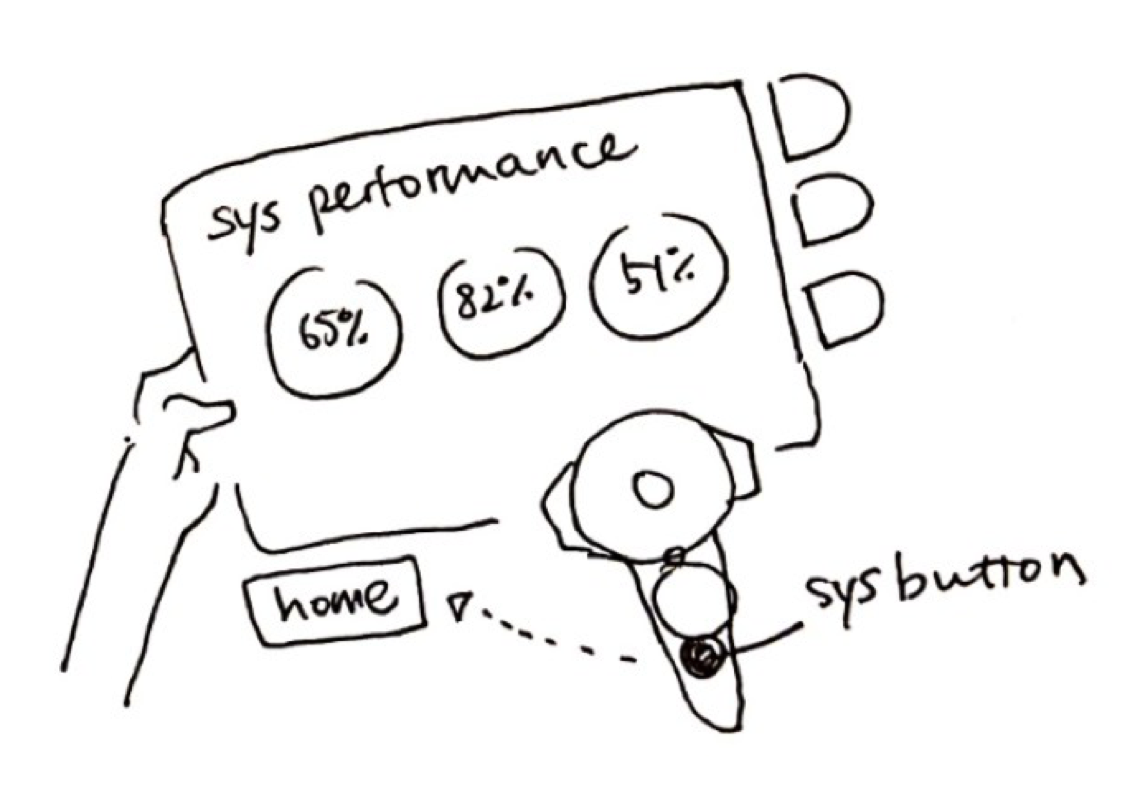 sys performance
65% 82% 51%
home
sys button